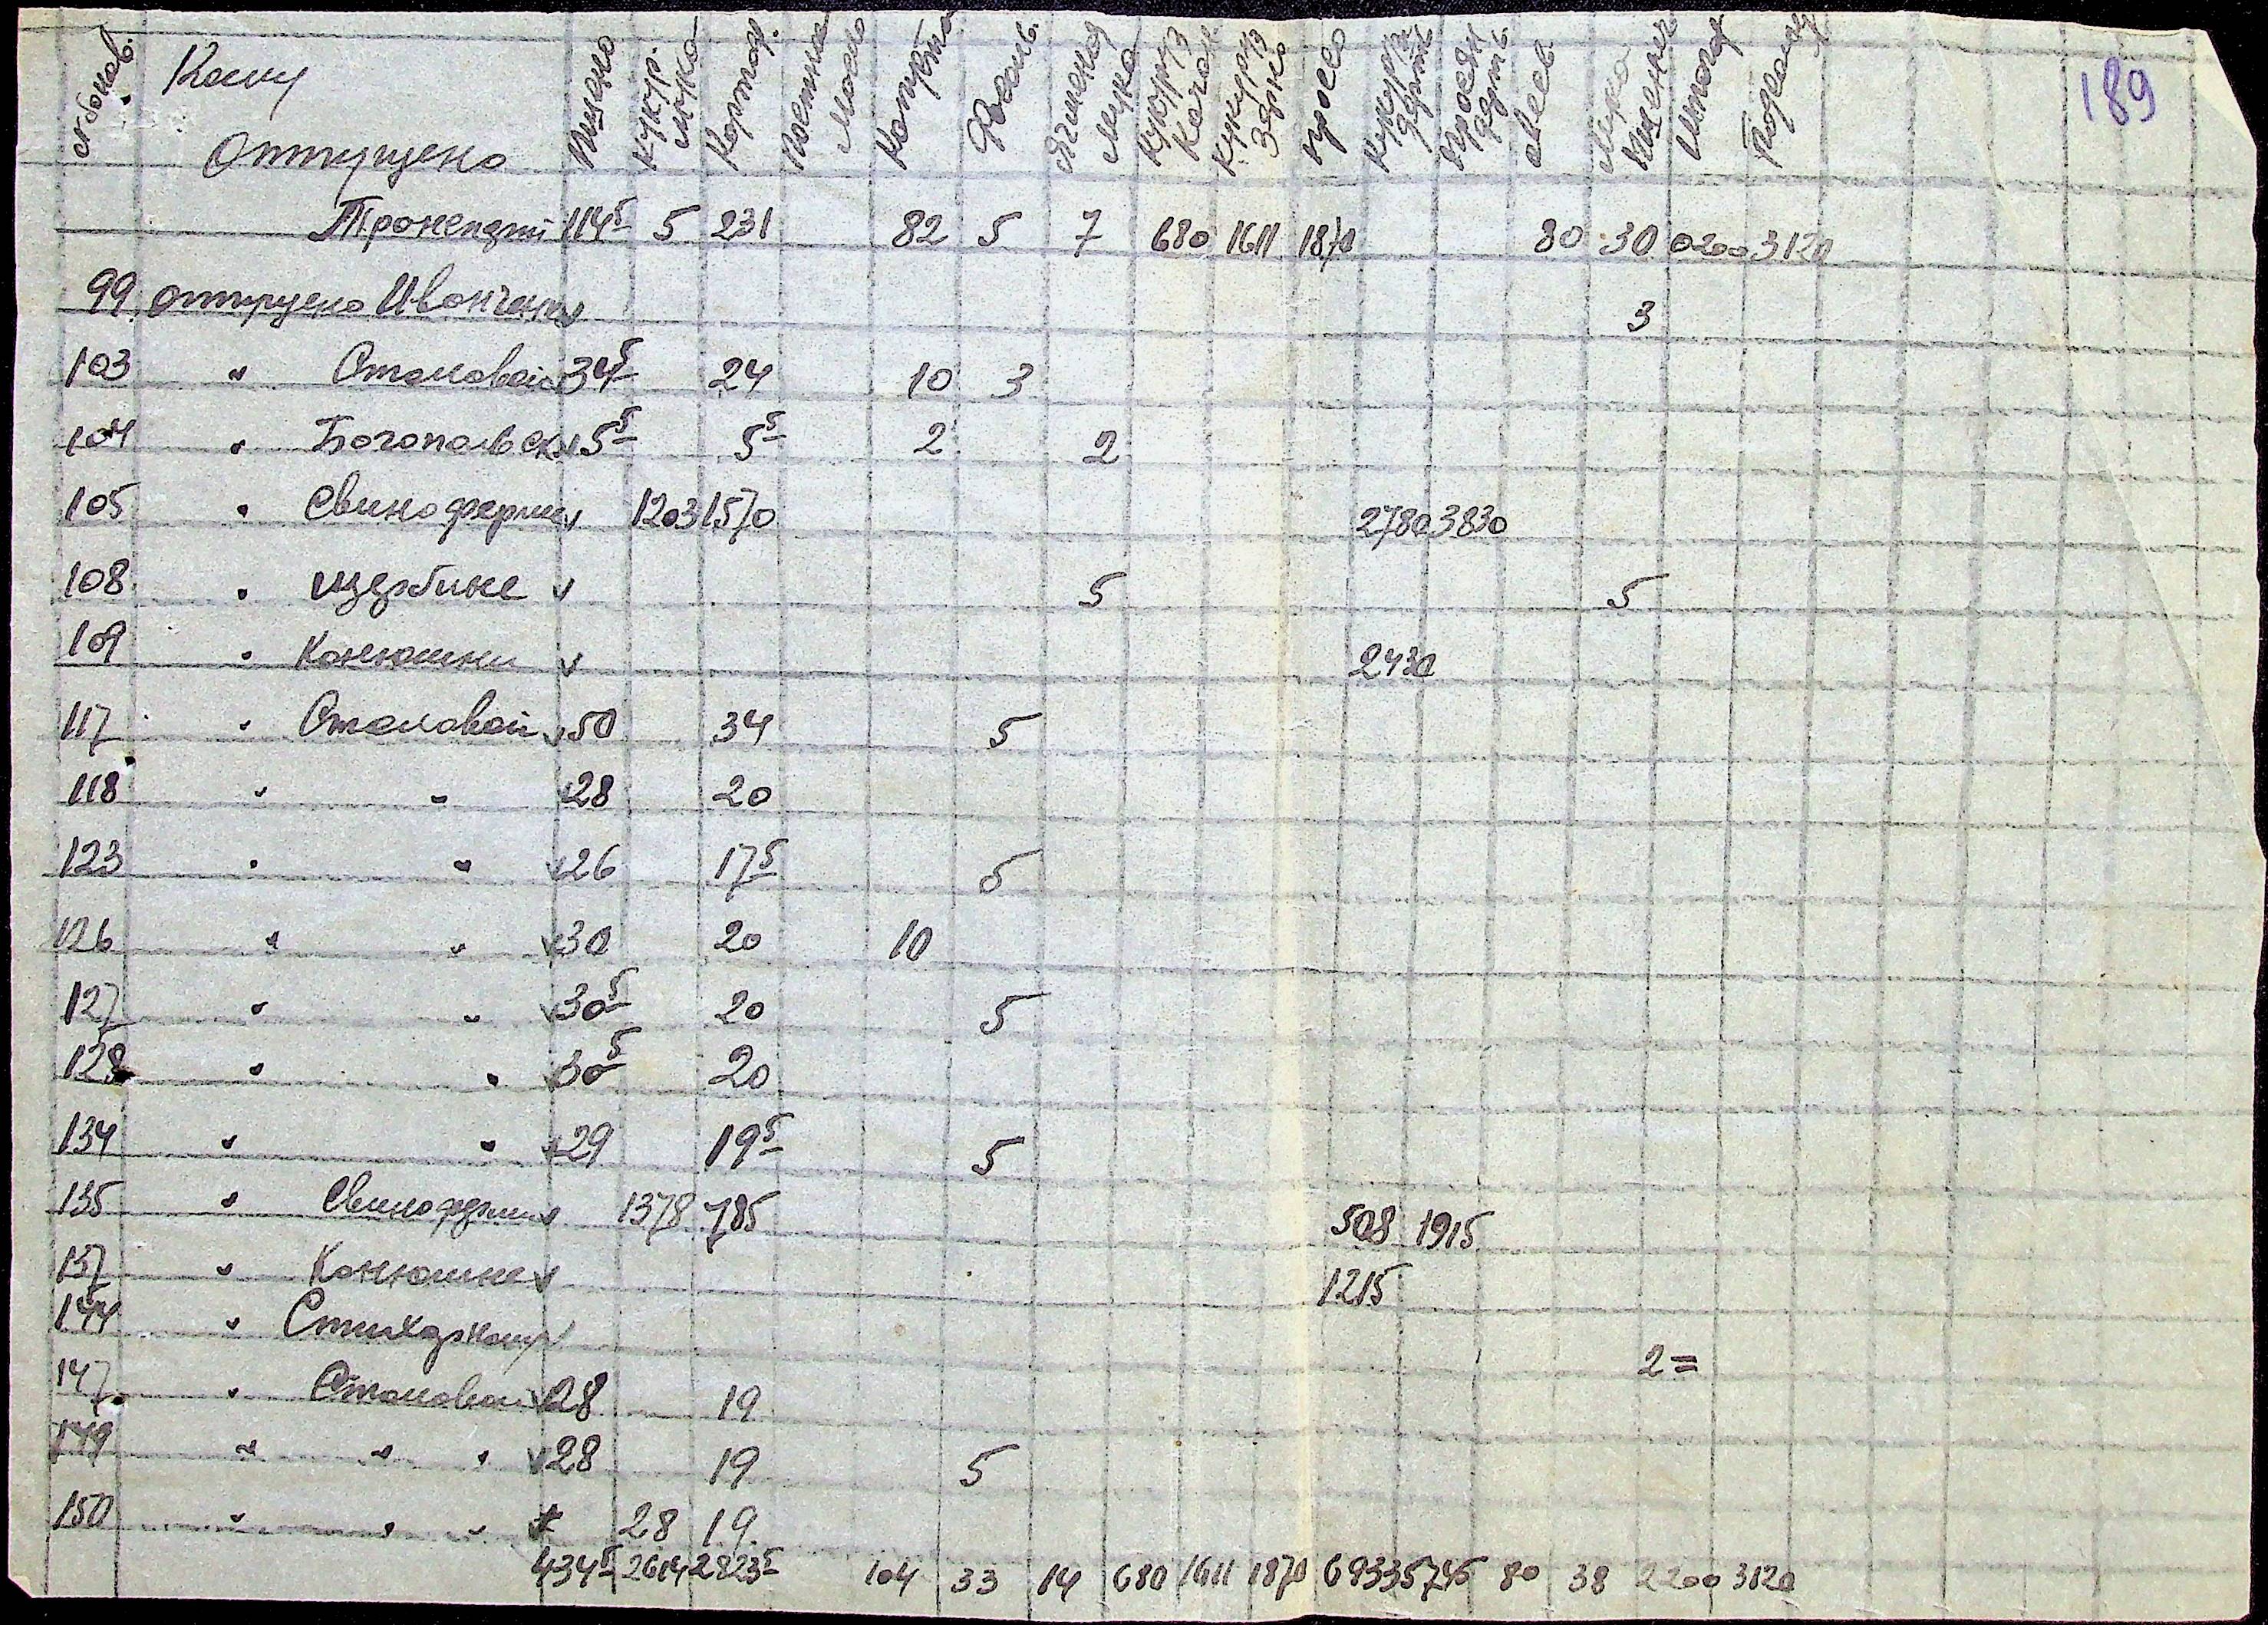 189
Кому
Отпущено
Пшено Кукур. мука Картоф. Постное Масло Капуста Фасоль Ячменая Мука Кукуруз Качан Кукуруз Зерно просо Кукурузн дерть Просян дерть Мука
114⁵ 5 231 82 5 7 680 1611 1870 80 30 2200 3120
99 отпущено 3
103 " Столовой 34⁵ 24 10 3
104 " Богопольск 5⁵ 5⁵ 2 2
105 " Свиноферме 1203 1570 2780 3830
108 " Щербине 5 5
109 " Конюшни 2430
117 " Столовой 50 34 5
118 " " 28 20
123 " " 26 17⁵ 5
126 " " 30 20 10
127 " " 30⁵ 20 5
128 " " 30⁵ 20
134 " " 29 19⁵ 5
135 " Свиноферми 1378 785 508 1915
137 " Конюшне 1215
144 " 2=
147 " Столовой 28 19
149 " " " 28 19 5
150 " " " 28 19
434⁵ 2614 2823⁵ 104 33 14 680 1611 1870 6933 5745 80 38 2200 3120